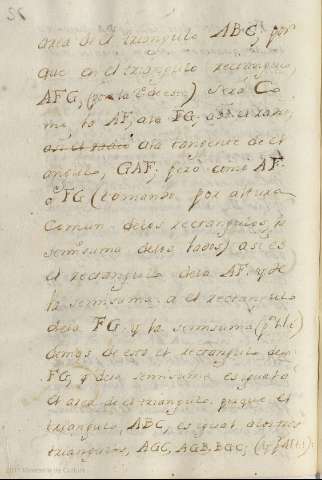 area de el triangulo ABC; por
que en el triangulo rectangulo,
AFG, (por la 6 de este) será Co
mo, la AF, ala FG; asi el radio,
asi el radio ala tangente de el
angulo, GAF; pero como AF.
a FG (tomando por altura
Comun delos rectangulos, la
semisuma delos lados) así es
el rectangulo dela AF. y de
la semisuma a el rectangulo
dela FG. y la semisuma
demas de esto el rectangulo dela
FG, y dela semisuma es igual a
el area de el triangulo, pues que el
triangulo, ABC, es igual alos tres
triangulos, AGC, AGB, BGC;
2011 Ministerio de Cultura